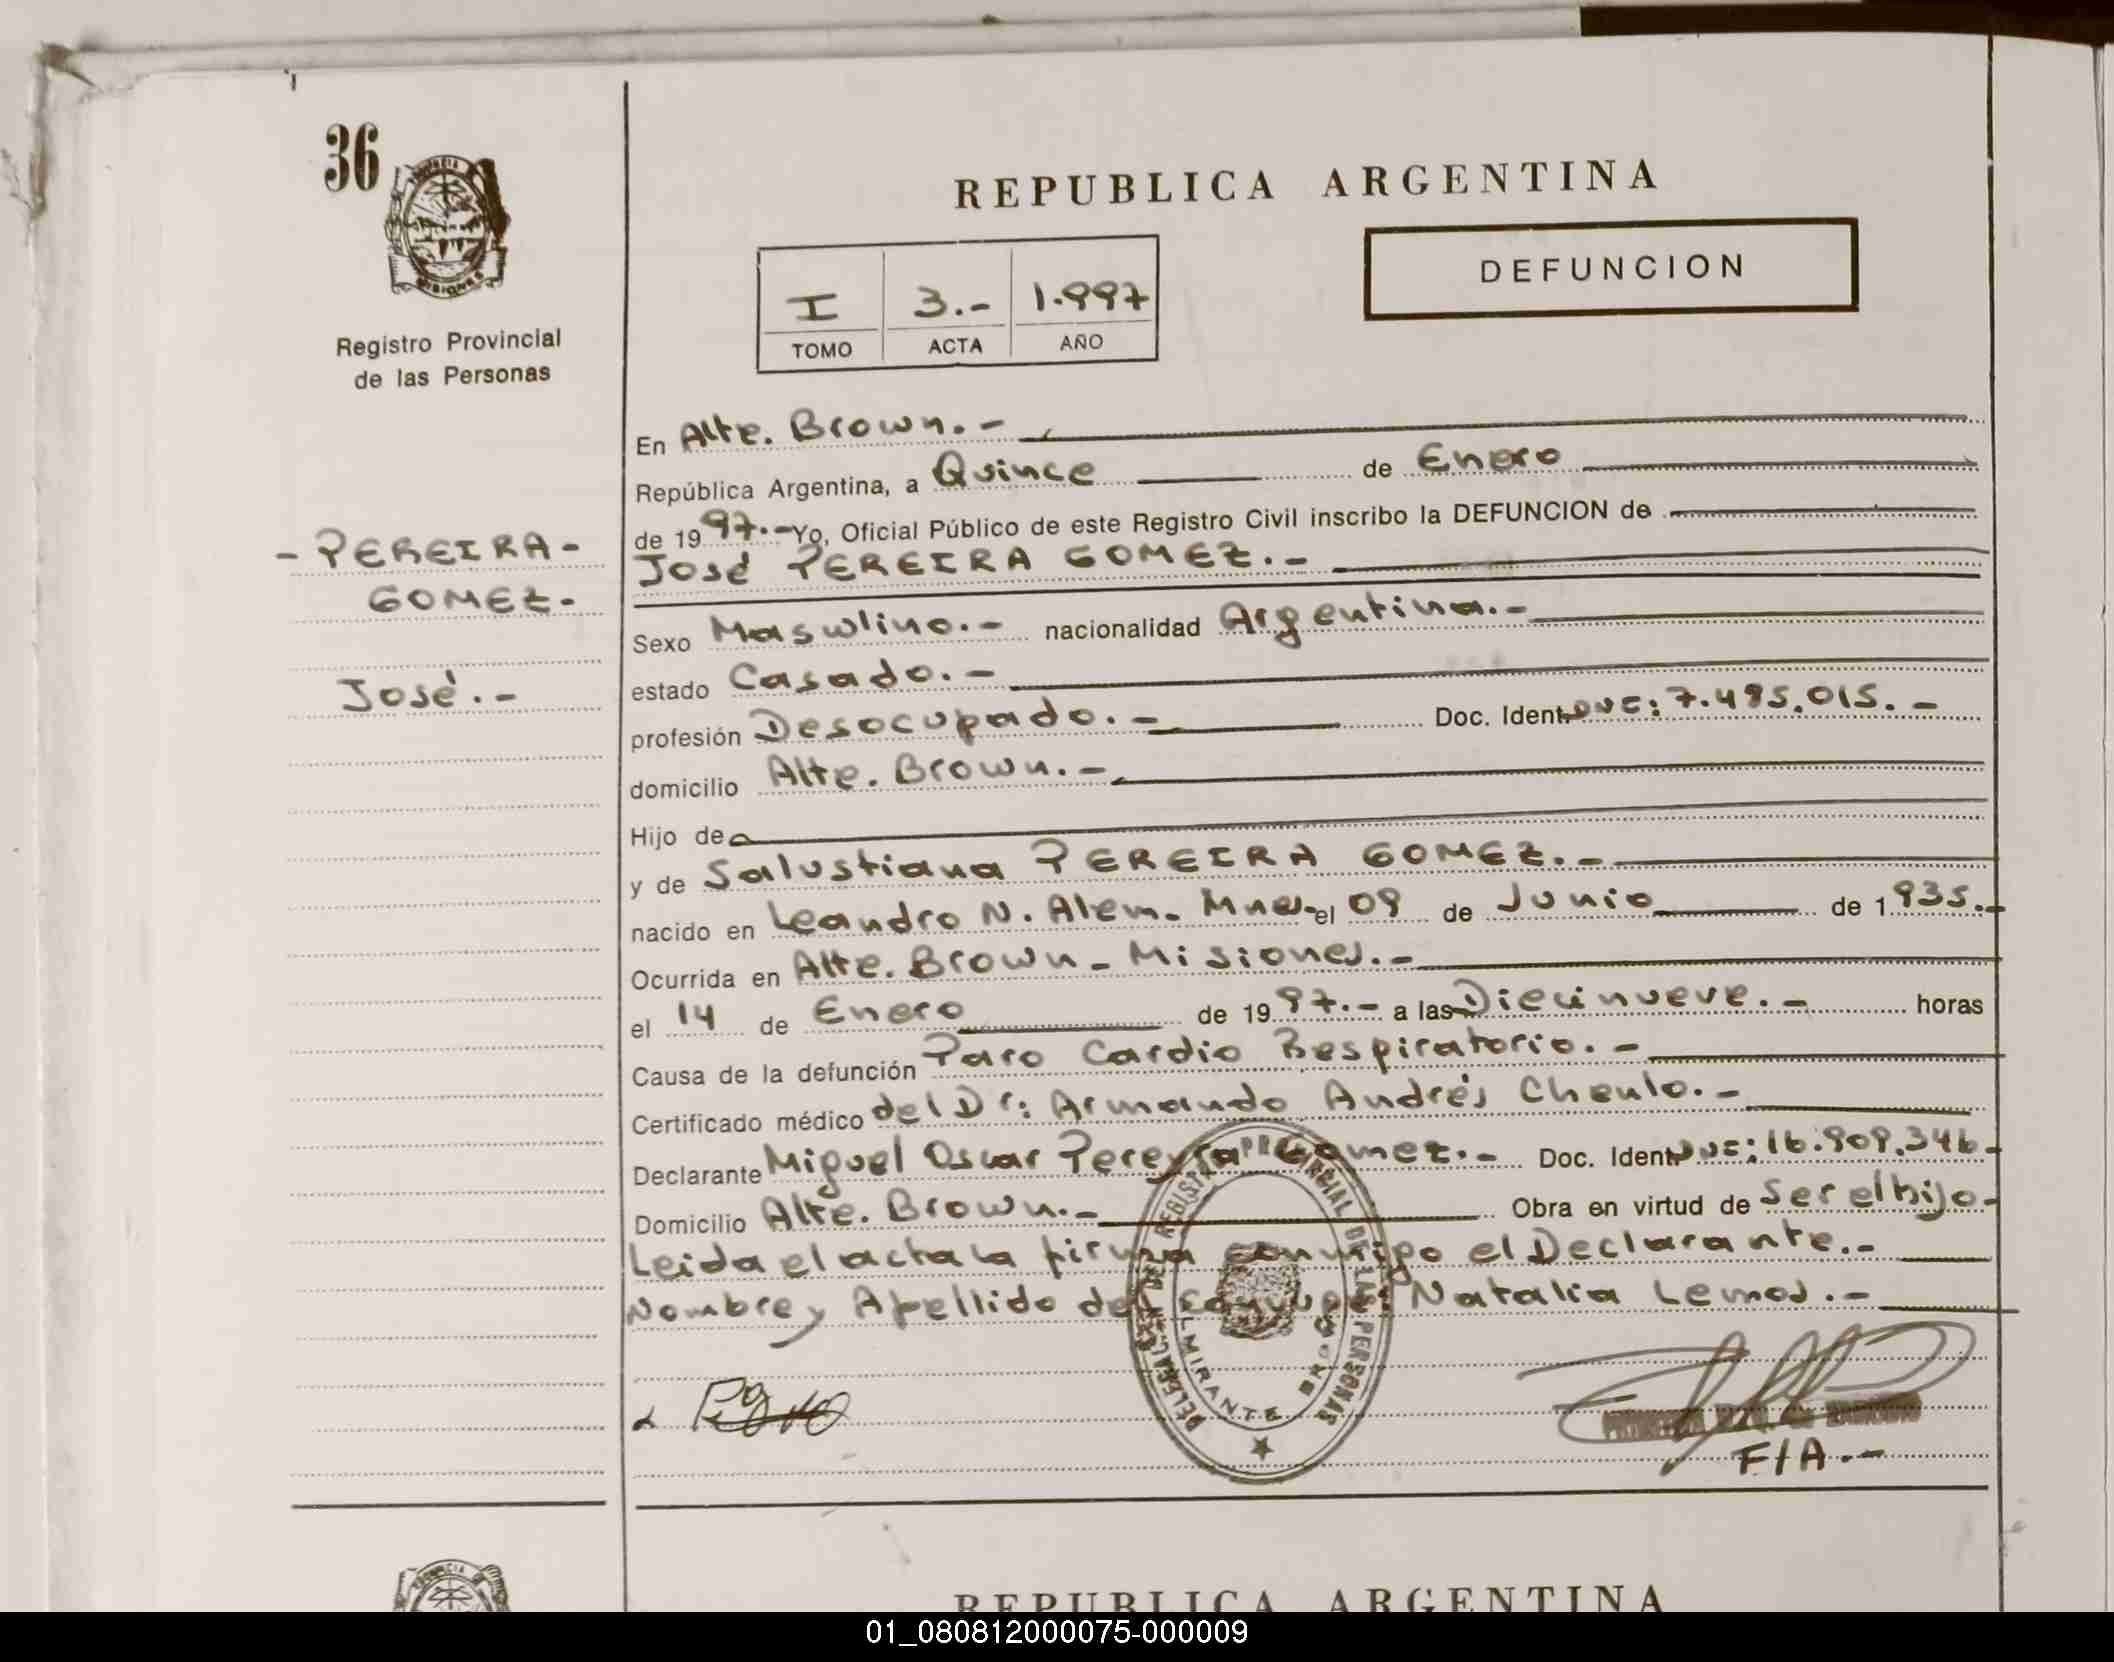 36
PROVINCIA DE
MISIONES
Registro Provincial
de las Personas
REPUBLICA ARGENTINA
DEFUNCION
I 3.- 1.997
TOMO ACTA AÑO
En Alte. Brown.-
República Argentina, a Quince de Enero
de 1997.- Yo, Oficial Público de este Registro Civil inscribo la DEFUNCION de
José PEREIRA GOMEZ.-
- PEREIRA -
GOMEZ.-
José.-
Sexo Masculino.- nacionalidad Argentina.-
estado Casado.-
profesión Desocupado.- Doc. Ident. DNI: 7.495.015.-
domicilio Alte. Brown.-
Hijo de
y de Salustiana PEREIRA GOMEZ.-
nacido en Leandro N. Alem. Mnes- el 09 de Junio de 1935.-
Ocurrida en Alte. Brown - Misiones.-
el 14 de Enero de 1997.- a las Diecinueve.- horas
Causa de la defunción Paro Cardio Respiratorio.-
Certificado médico del Dr: Armando Andrés
Declarante Miguel Oscar Pereyra Gomez.- Doc. Ident. DNI: 16.909.346-
Domicilio Alte. Brown.- Obra en virtud de Ser el hijo-
Leida el acta la firma conmigo el Declarante.-
Nombre y Apellido del Conyuge: Natalia Lemos.-
DELEGACION DEL REGISTRO PROVINCIAL DE LAS PERSONAS
ALMIRANTE BROWN
F/A.-
REPUBLICA ARGENTINA
01_080812000075-000009